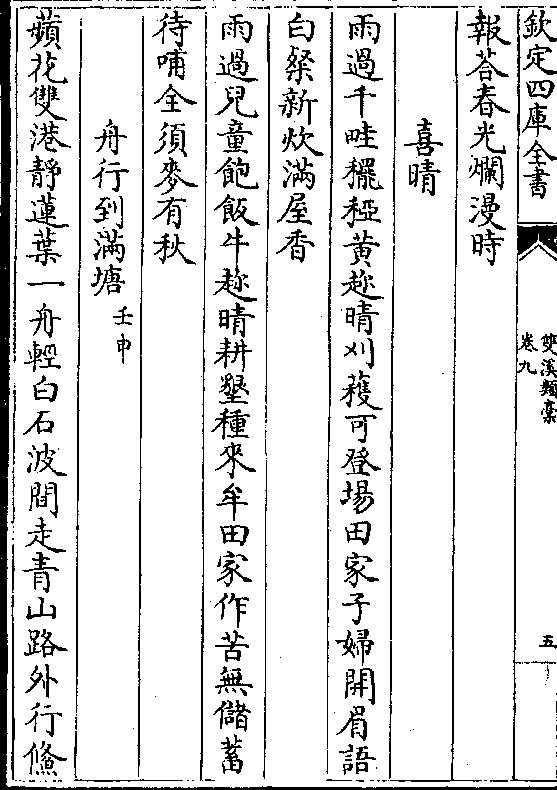 欽定四庫全書
雙溪類稾
卷九
五
報荅春光爛漫時
喜晴
雨過千畦䆉稏黄趂晴刈穫可登場田家子婦開眉語
白粲新炊滿屋香
雨過兒童飽飯牛趂晴耕墾種來牟田家作苦無儲蓄
待哺全須麥有秋
舟行到滿塘壬申
蘋花雙港靜蓮葉一舟輕白石波間走青山路外行鯈